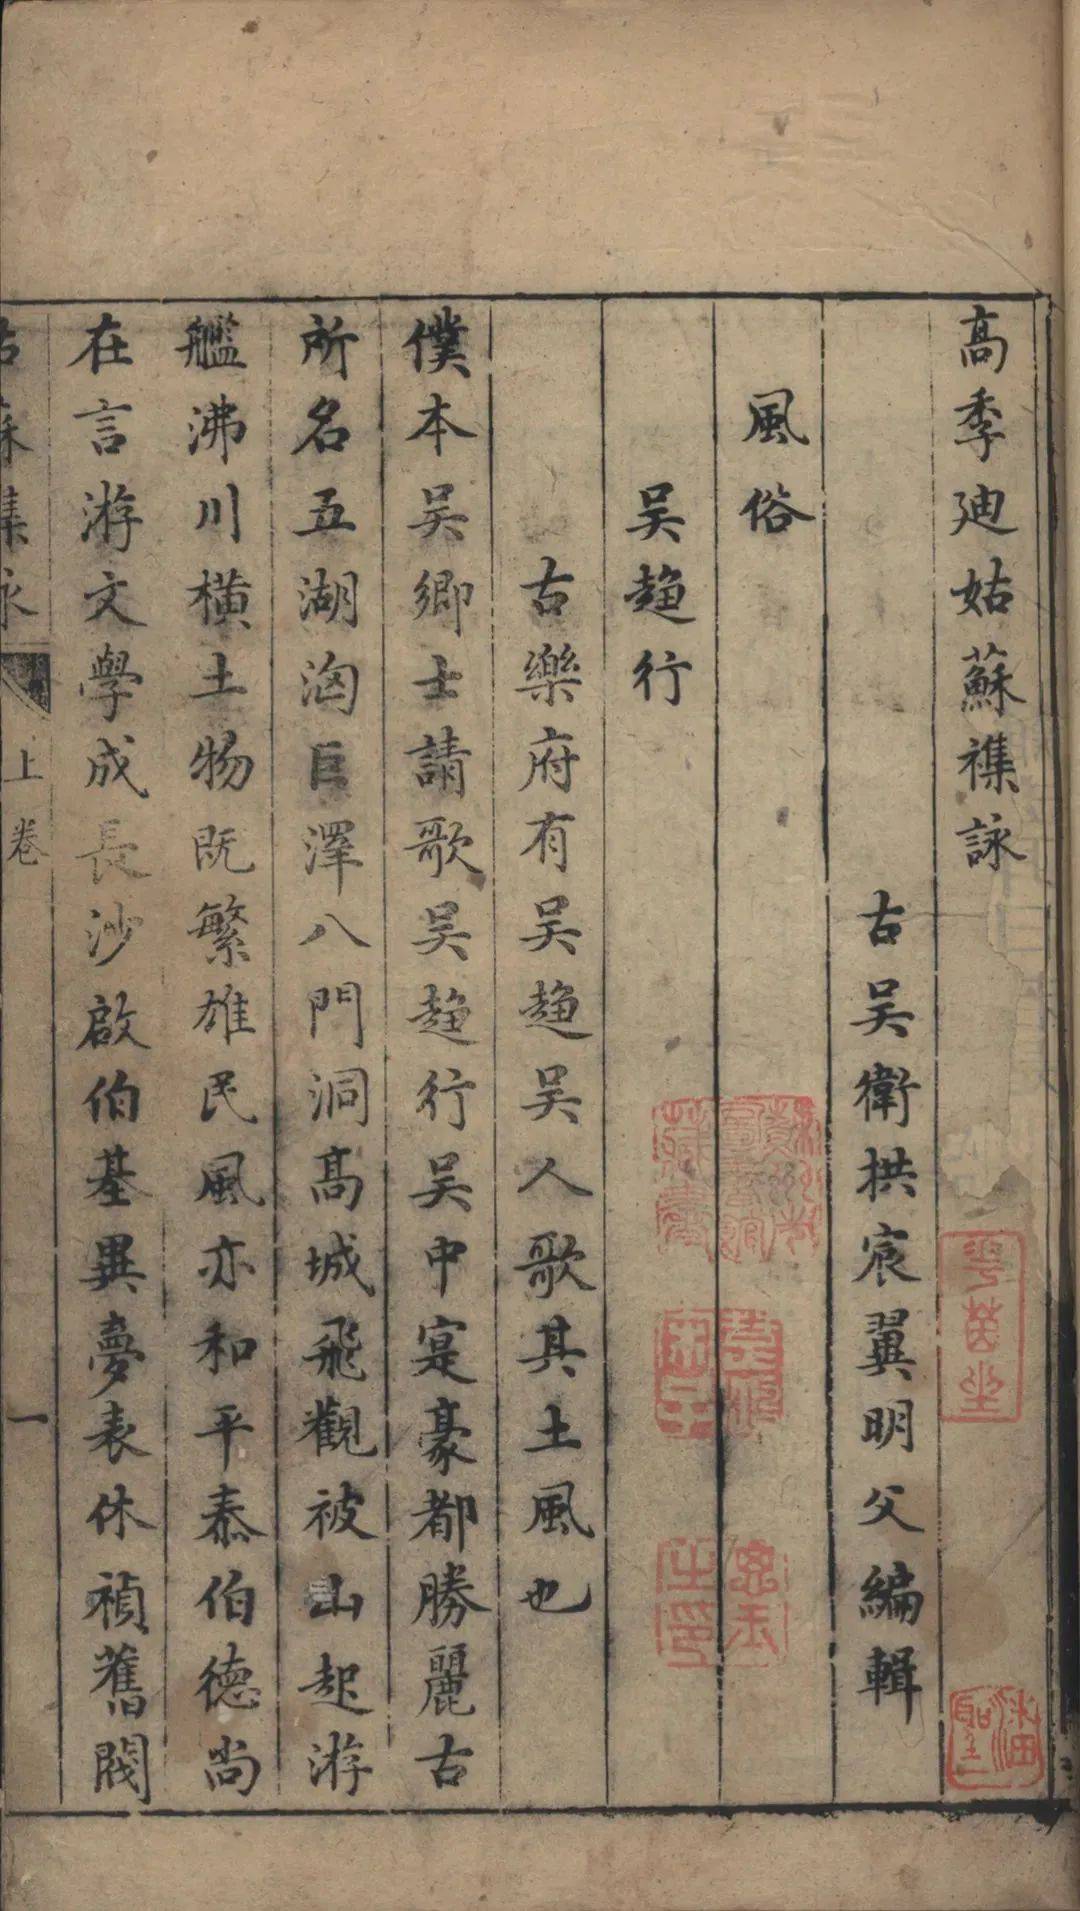 高季迪姑蘇襍詠
古吴衛拱宸翼明父編輯
風俗
吴趨行
古樂府有吴趨吴人歌其土風也
僕本吴鄉士請歌吴趨行吴中寔豪都勝麗古
所名五湖洶巨澤八門洞高城飛觀被山起游
艦沸川橫土物既繁雄民風亦和平泰伯德尚
在言游文學成長沙啟伯基異夢表休禎舊閥
姑蘇集詠
上卷
一